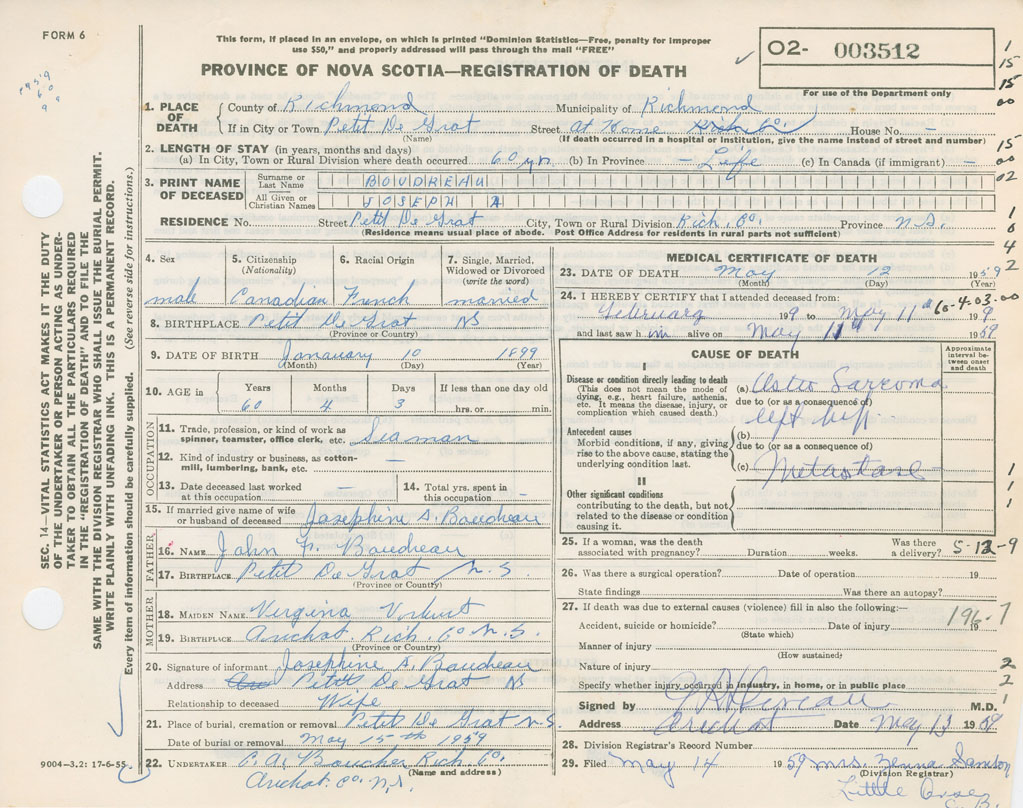 FORM 6
This form, if placed in an envelope, on which is printed "Dominion Statistics—Free, penalty for improper
use $50," and properly addressed will pass through the mail "FREE"
PROVINCE OF NOVA SCOTIA—REGISTRATION OF DEATH
02- 003512
For use of the Department only
SEC. 14—VITAL STATISTICS ACT MAKES IT THE DUTY
OF THE UNDERTAKER OR PERSON ACTING AS UNDER-
TAKER TO OBTAIN ALL THE PARTICULARS REQUIRED
IN THE "REGISTRATION OF DEATH" AND TO FILE THE
SAME WITH THE DIVISION REGISTRAR WHO SHALL ISSUE THE BURIAL PERMIT.
WRITE PLAINLY WITH UNFADING INK. THIS IS A PERMANENT RECORD.
Every item of information should be carefully supplied. (See reverse side for instructions.)
1. PLACE OF DEATH
County of Richmond Municipality of Richmond
If in City or Town Petit De Grat Street at Home House No. -
(Name) (If death occurred in a hospital or institution, give the name instead of street and number)
2. LENGTH OF STAY (in years, months and days)
(a) In City, Town or Rural Division where death occurred 60 yrs (b) In Province - Life (c) In Canada (if immigrant) -
3. PRINT NAME OF DECEASED
Surname or Last Name BOUDREAU
All Given or Christian Names JOSEPH A
RESIDENCE No. Street Petit De Grat City, Town or Rural Division Rich. Co. Province N.S.
(Residence means usual place of abode. Post Office Address for residents in rural parts not sufficient)
4. Sex male
5. Citizenship (Nationality) Canadian
6. Racial Origin French
7. Single, Married, Widowed or Divorced (write the word) married
8. BIRTHPLACE Petit De Grat NS
(Province or Country)
9. DATE OF BIRTH January 10 1899
(Month) (Day) (Year)
10. AGE in Years 60 Months 4 Days 3 If less than one day old hrs. or min.
OCCUPATION
11. Trade, profession, or kind of work as spinner, teamster, office clerk, etc. Seaman
12. Kind of industry or business, as cotton-mill, lumbering, bank, etc. —
13. Date deceased last worked at this occupation —
14. Total yrs. spent in this occupation —
15. If married give name of wife or husband of deceased Josephine A. Boudreau
FATHER
16. NAME John F. Boudreau
17. BIRTHPLACE Petit De Grat N.S.
(Province or Country)
MOTHER
18. MAIDEN NAME Virgina
19. BIRTHPLACE Arichat. Rich. Co N.S.
(Province or Country)
20. Signature of informant Josephine A. Boudreau
Address Petit De Grat NS
Relationship to deceased Wife
21. Place of burial, cremation or removal Petit De Grat N.S.
Date of burial or removal May 15th 1959
22. UNDERTAKER C. A. Boucher Rich. Co.
(Name and address)
Arichat Co. N.S.
9004-3.2: 17-6-55
MEDICAL CERTIFICATE OF DEATH
23. DATE OF DEATH May 12 1959
(Month) (Day) (Year)
24. I HEREBY CERTIFY that I attended deceased from:
February 199 to May 11th 199
and last saw h im alive on May 11th 1959
CAUSE OF DEATH
Approximate interval between onset and death
I
Disease or condition directly leading to death
(This does not mean the mode of dying, e.g., heart failure, asthenia, etc. It means the disease, injury, or complication which caused death.)
(a) Osteo Sarcoma
due to (or as a consequence of)
left hip
Antecedent causes
Morbid conditions, if any, giving rise to the above cause, stating the underlying condition last.
(b)
due to (or as a consequence of)
(c) Metastase
II
Other significant conditions
contributing to the death, but not related to the disease or condition causing it.
25. If a woman, was the death associated with pregnancy? Duration weeks. Was there a delivery? 5-12-9
26. Was there a surgical operation? Date of operation 19
State findings Was there an autopsy?
27. If death was due to external causes (violence) fill in also the following:—
196.7
Accident, suicide or homicide? Date of injury 19
(State which)
Manner of injury
(How sustained)
Nature of injury
Specify whether injury occurred in industry, in home, or in public place
Signed by M.D.
Address Arichat Date May 13 1959
28. Division Registrar's Record Number
29. Filed May 14 1959 Mrs. Zenna Samson
(Division Registrar)
Little Anse
C.B.